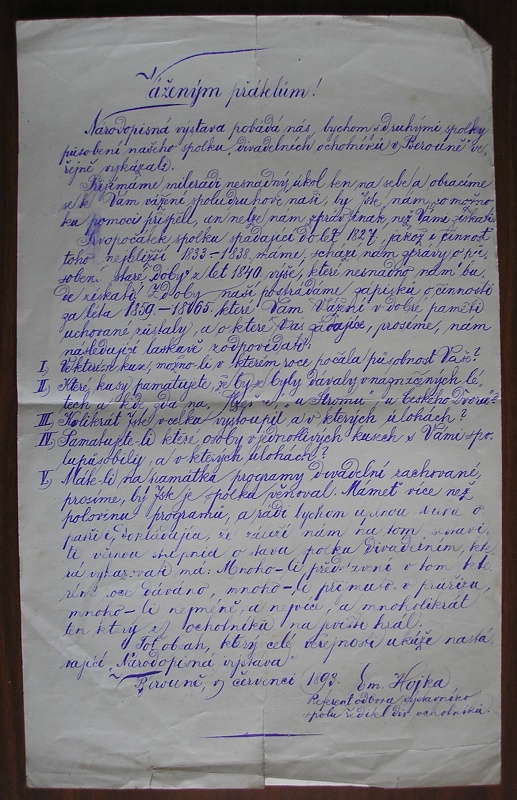 Váženým přátelům!
Národopisná výstava pobádá nás, bychom s druhými spolky
působení našeho spolku „divadelních ochotníků v Berouně“ ve-
řejně vykázali.
Přijímáme milerádi nesnadný úkol ten na sebe a obracíme
se k Vám vážení spoludruhové naši, by jste nám ku
pomoci přispěli, an nelze nám zpráv jinak, než Vámi získati.
Prvopočátek spolku spadající do let 1827, jakož i činnost
toho nejbližší 1833–1838 máme, schází nám zprávy o pů-
sobení „staré doby“ z let 1840 výše, které nesnadno nám bu-
de získati. Z doby naší postrádáme zápisků o činnosti
za léta 1859–1865, které Vám Vážení v dobré paměti
uchované zůstaly, a o které Vás žádajíce, prosíme, nám
následující laskavě zodpovědati:
I, Ve kterém kuse, možno-li v kterém roce počala působnost Vaše?
II, Které kusy pamatujete, že by se byly dávaly v naznačených lé-
tech a kde, zda na „ “ „u Stromu“, „u Českého Dvora“?
III, Kolikrát jste v celku vystoupil a v kterých úlohách?
IV, Pamatujete-li které osoby v jednotlivých kusech s Vámi spo-
lupůsobily, a v kterých úlohách?
V, Máte-li na památku programy divadelní zachované,
prosíme, by jste je spolku věnoval. Máme více než
polovinu programů, a rádi bychom
nám na tom
o stavu divadelním, kte-
rý má: Mnoho-li představení v tom kte-
rém roce dáváno, mnoho-li průměrně v průřezu,
mnoho-li nejméně, a nejvíce, a mnohokrát
ten který z ochotníků na jevišti hrál.
Toť obah, který celé veřejnosti ukáže nastá-
vající „Národopisná výstava“
V Berouně, v červenci 189 Em. Hojka
Referent odboru výstavního
spolu ředitel div. ochotníků.